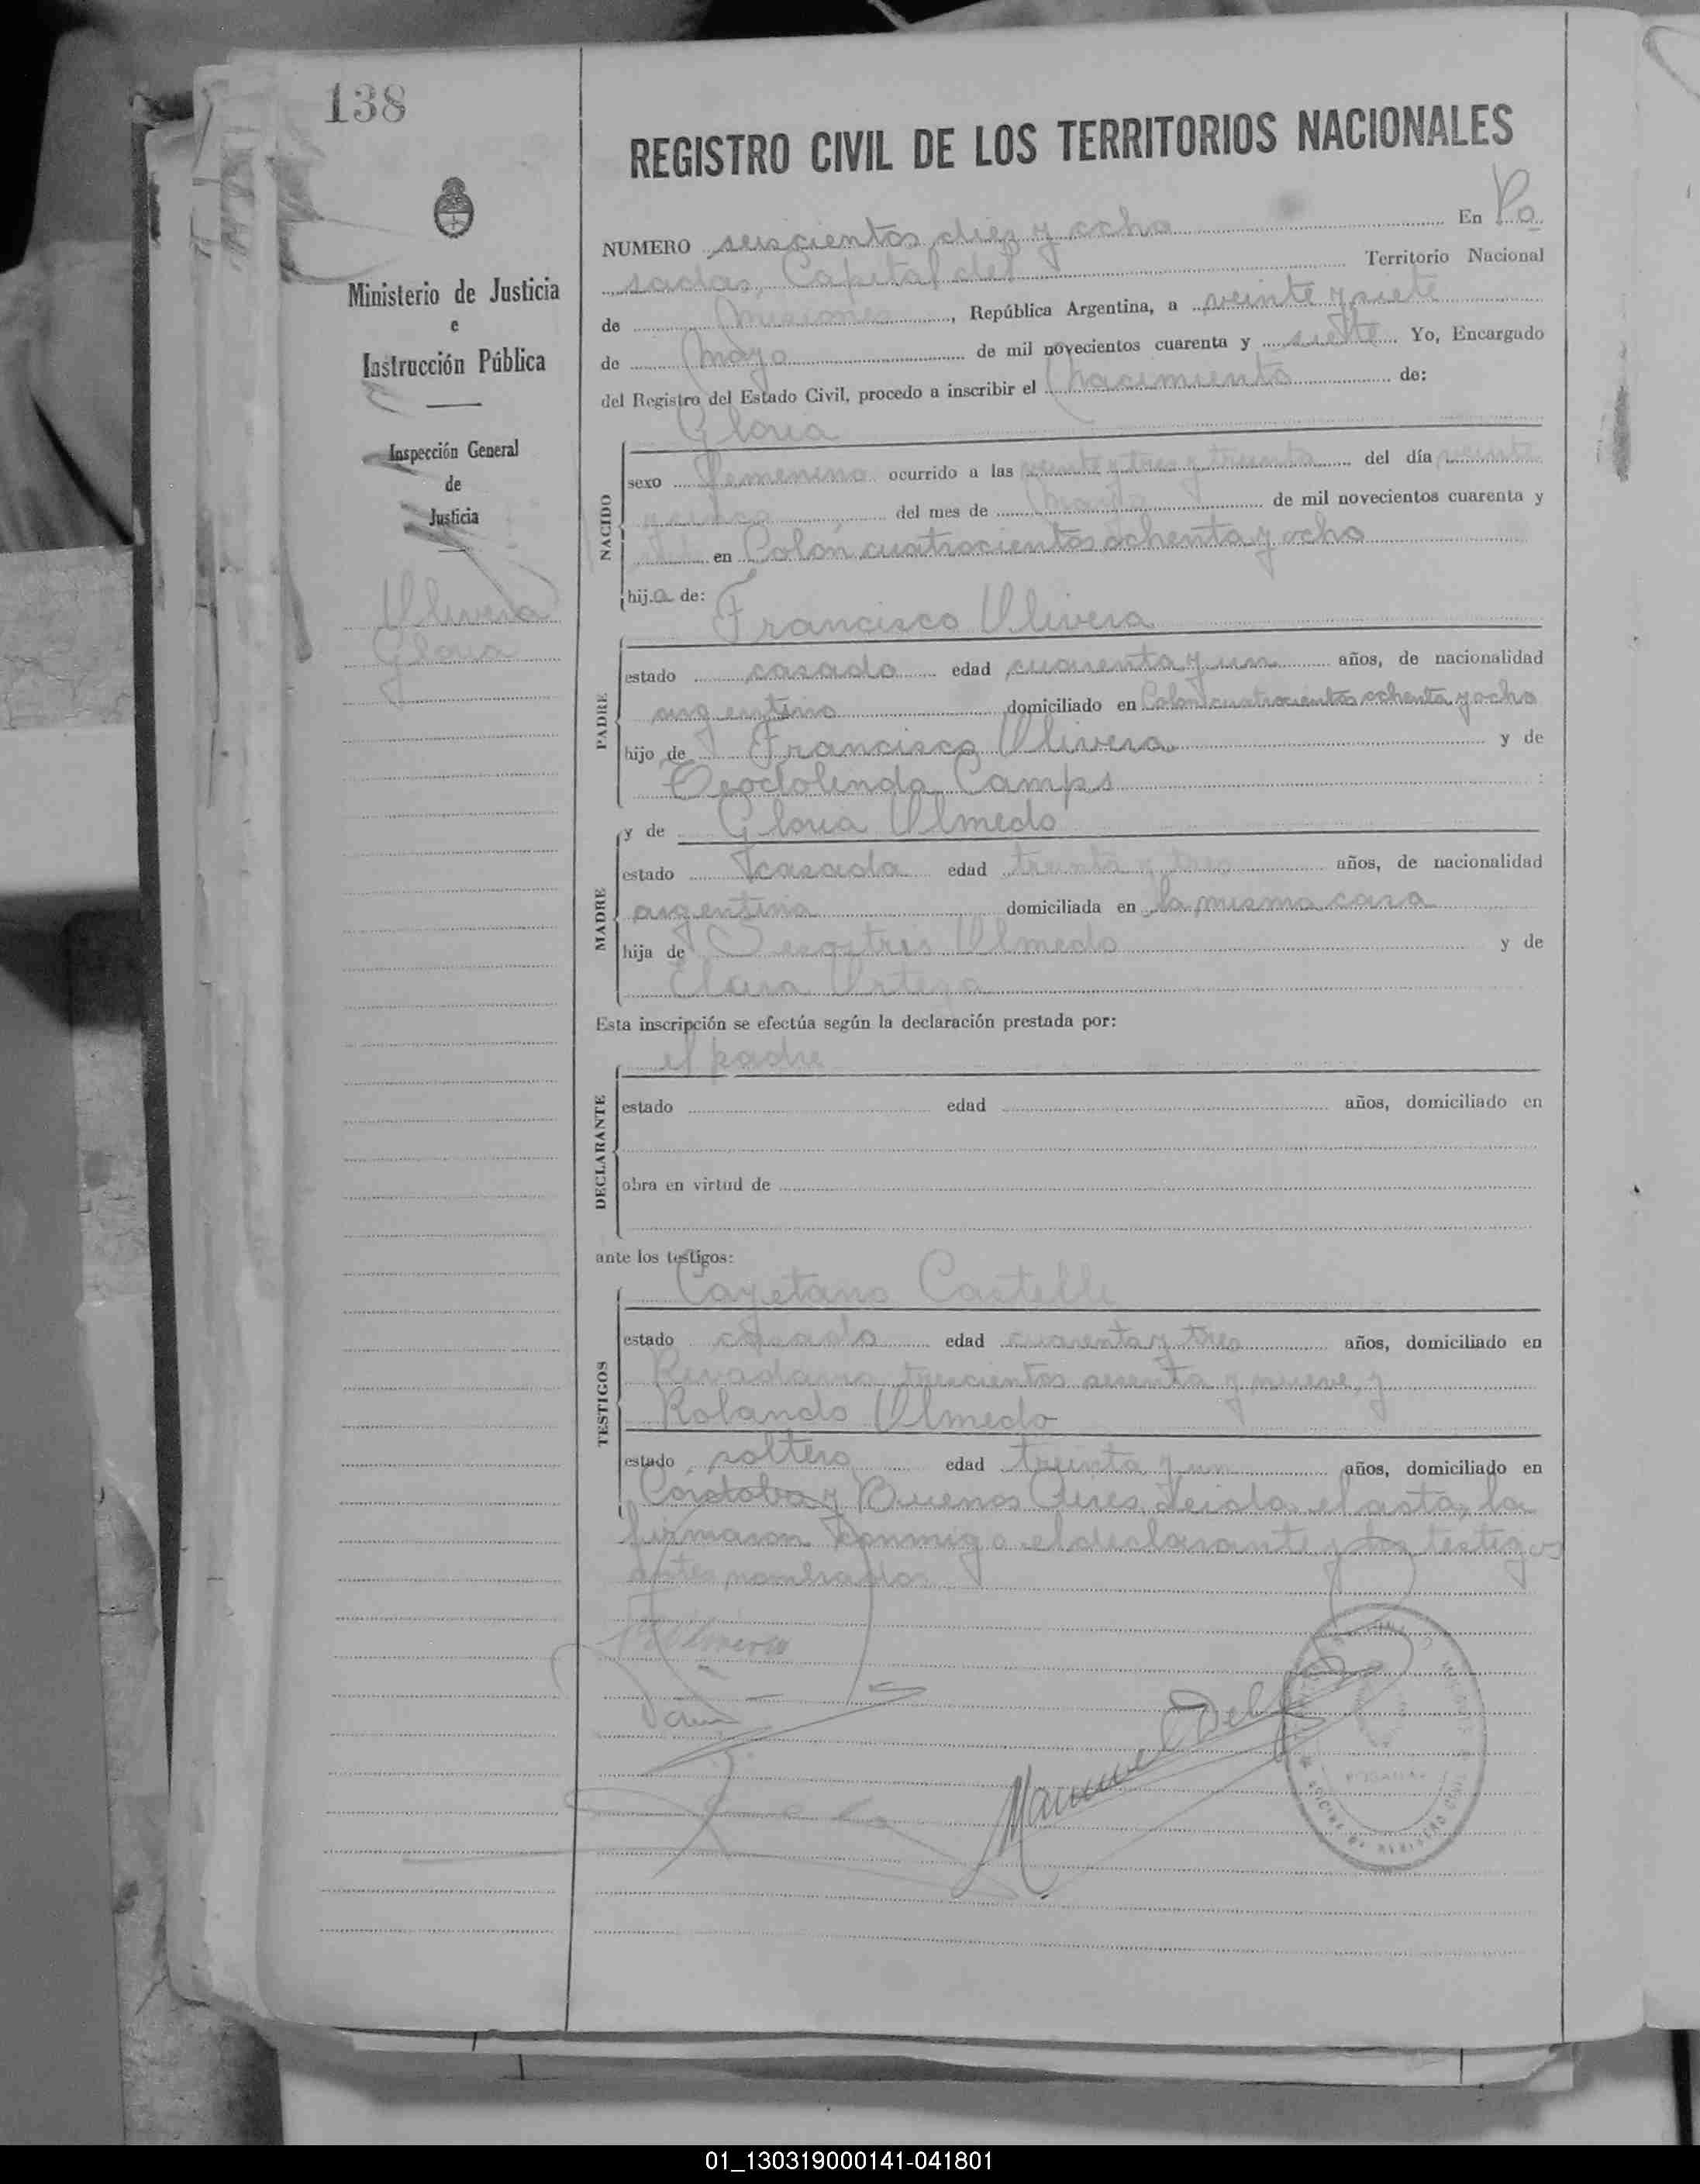 138
REGISTRO CIVIL DE LOS TERRITORIOS NACIONALES
Ministerio de Justicia
e
Instrucción Pública
Inspección General
de
Justicia
Olivera
Gloria
NUMERO seiscientos diez y ocho En Po
sadas, Capital del Territorio Nacional
de Misiones, República Argentina, a veinte y siete
de Mayo de mil novecientos cuarenta y siete Yo, Encargado
del Registro del Estado Civil, procedo a inscribir el nacimiento de:
Gloria
NACIDO
sexo femenino ocurrido a las veinte y tres y treinta del día veinte
y cinco del mes de Mayo de mil novecientos cuarenta y
en Colón cuatrocientos ochenta y ocho
hija de:
Francisco Olivera
PADRE
estado casado edad cuarenta y un años, de nacionalidad
argentino domiciliado en Colón cuatrocientos ochenta y ocho
hijo de Francisco Olivera y de
Teodolinda Camps
y de Gloria Olmedo
MADRE
estado casada edad treinta y tres años, de nacionalidad
argentina domiciliada en la misma casa
hija de Sesostris Olmedo y de
Clara Ortega
Esta inscripción se efectúa según la declaración prestada por:
el padre
DECLARANTE
estado edad años, domiciliado en
obra en virtud de
ante los testigos:
Cayetano Castelli
TESTIGOS
estado casado edad cuarenta y tres años, domiciliado en
Rivadavia trescientos sesenta y nueve, y
Rolando Olmedo
estado soltero edad treinta y un años, domiciliado en
Córdoba y Buenos Aires. Leida el acta, la
firmaron conmigo el declarante y los testigos
antes nombrados
Olivera
Manuel
POSADAS
01_130319000141-041801